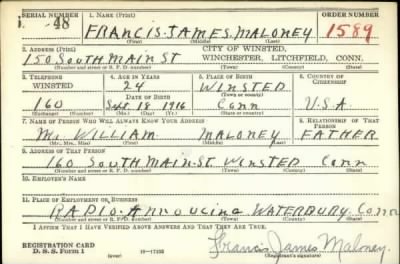 SERIAL NUMBER 1. NAME (Print) ORDER NUMBER
48 FRANCIS JAMES MALONEY 1589
(First) (Middle) (Last)
2. ADDRESS (Print) CITY OF WINSTED,
150 SOUTH MAIN ST WINCHESTER, LITCHFIELD, CONN.
(Number and street or R. F. D. number) (Town) (County) (State)
3. TELEPHONE 4. AGE IN YEARS 5. PLACE OF BIRTH 6. COUNTRY OF CITIZENSHIP
WINSTED 24 WINSTED
DATE OF BIRTH (Town or county)
160 Sept. 18 1916 Conn U.S.A.
(Exchange) (Number) (Mo.) (Day) (Yr.) (State or country)
7. NAME OF PERSON WHO WILL ALWAYS KNOW YOUR ADDRESS 8. RELATIONSHIP OF THAT PERSON
Mr. WILLIAM MALONEY FATHER
(Mr., Mrs., Miss) (First) (Middle) (Last)
9. ADDRESS OF THAT PERSON
160 SOUTH MAIN ST. WINSTED Conn
(Number and street or R. F. D. number) (Town) (County) (State)
10. EMPLOYER'S NAME
11. PLACE OF EMPLOYMENT OR BUSINESS
RADIO-Announcing WATERBURY, Conn
(Number and street or R. F. D. number) (Town) (County) (State)
I AFFIRM THAT I HAVE VERIFIED ABOVE ANSWERS AND THAT THEY ARE TRUE.
REGISTRATION CARD
D. S. S. FORM 1 (over) 16—17105 Francis James Maloney
(Registrant's signature)